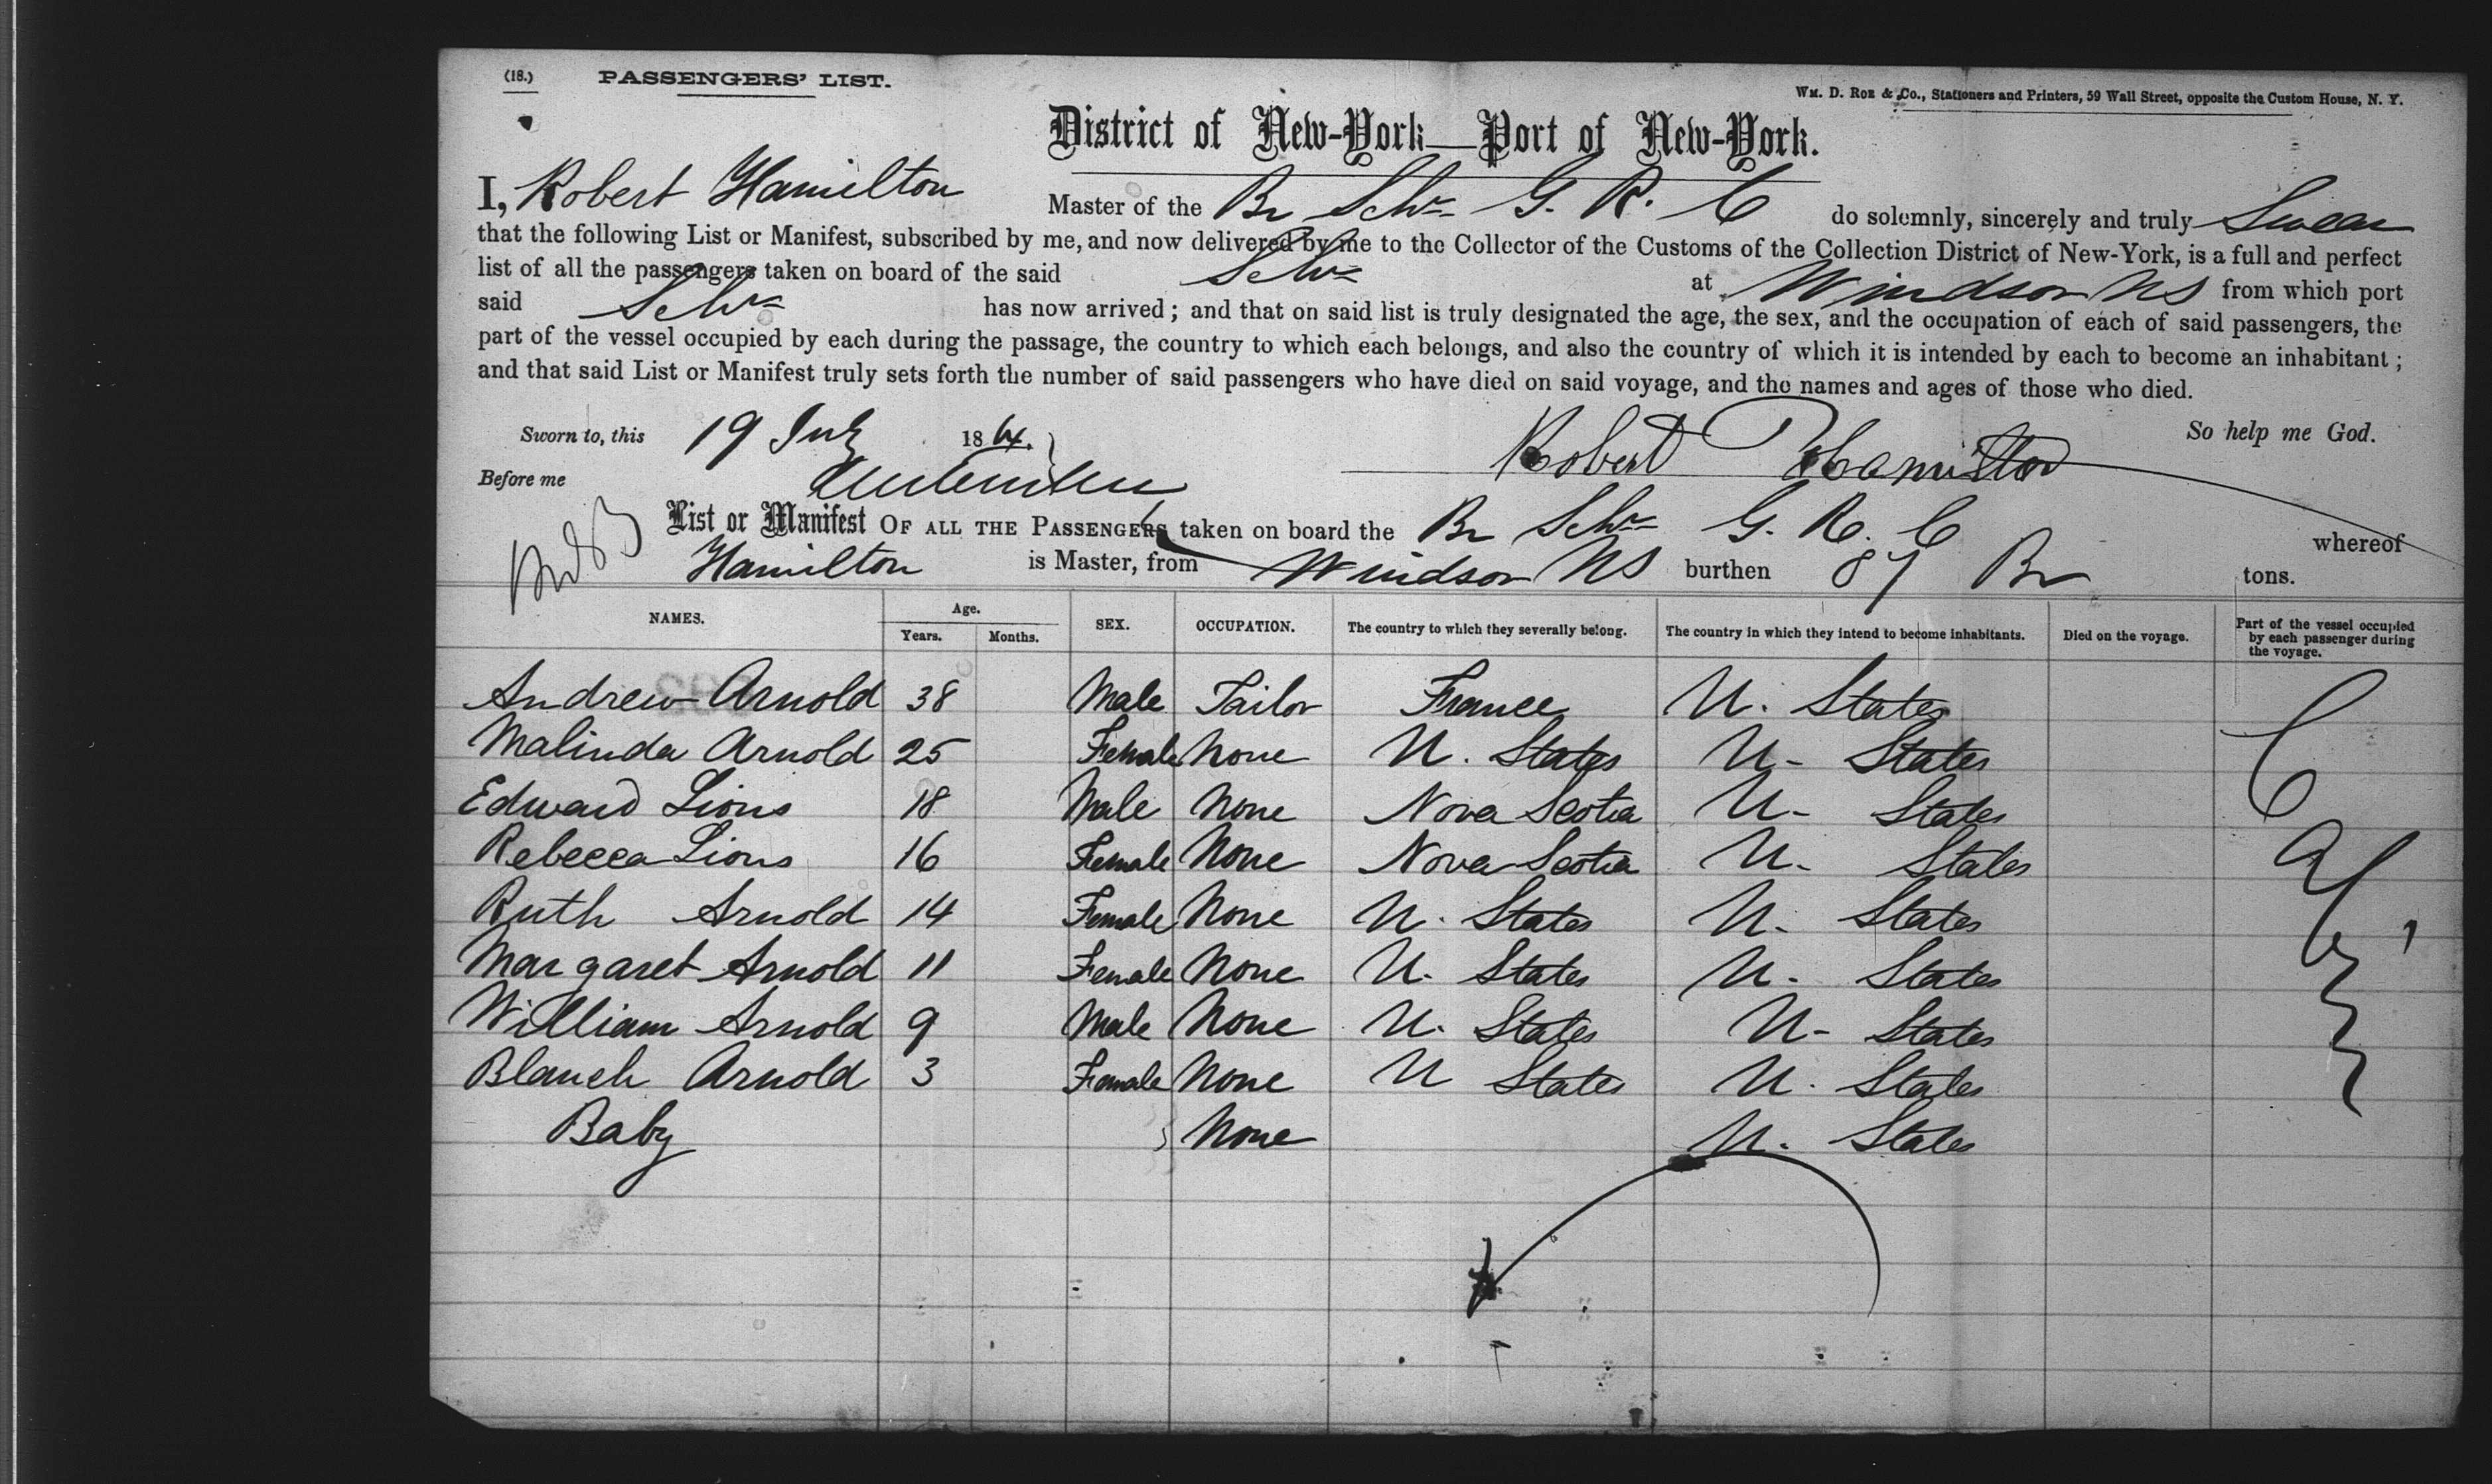 (18.) PASSENGERS' LIST.
Wm. D. Roe & Co., Stationers and Printers, 59 Wall Street, opposite the Custom House, N. Y.
District of New-York—Port of New-York.
I, Robert Hamilton Master of the Br Schr G. R. C do solemnly, sincerely and truly Swear
that the following List or Manifest, subscribed by me, and now delivered by me to the Collector of the Customs of the Collection District of New-York, is a full and perfect
list of all the passengers taken on board of the said Schr at Windsor NS from which port
said Schr has now arrived; and that on said list is truly designated the age, the sex, and the occupation of each of said passengers, the
part of the vessel occupied by each during the passage, the country to which each belongs, and also the country of which it is intended by each to become an inhabitant;
and that said List or Manifest truly sets forth the number of said passengers who have died on said voyage, and the names and ages of those who died.
Sworn to, this 19 July 1864. Robert Hamilton So help me God.
Before me
List or Manifest OF ALL THE PASSENGERS taken on board the Br Schr G. R. C whereof
Hamilton is Master, from Windsor NS burthen 87 Br tons.
NAMES. Age. Years. Months. SEX. OCCUPATION. The country to which they severally belong. The country in which they intend to become inhabitants. Died on the voyage. Part of the vessel occupied by each passenger during the voyage.
Andrew Arnold 38 Male Tailor France U. States
Malinda Arnold 25 Female None U. States U- States
Edward Lions 18 Male None Nova Scotia U- States
Rebecca Lions 16 Female None Nova Scotia U- States
Ruth Arnold 14 Female None U. States U- States
Margaret Arnold 11 Female None U- States U- States
William Arnold 9 Male None U- States U- States
Blanch Arnold 3 Female None U States U. States
Baby None U- States